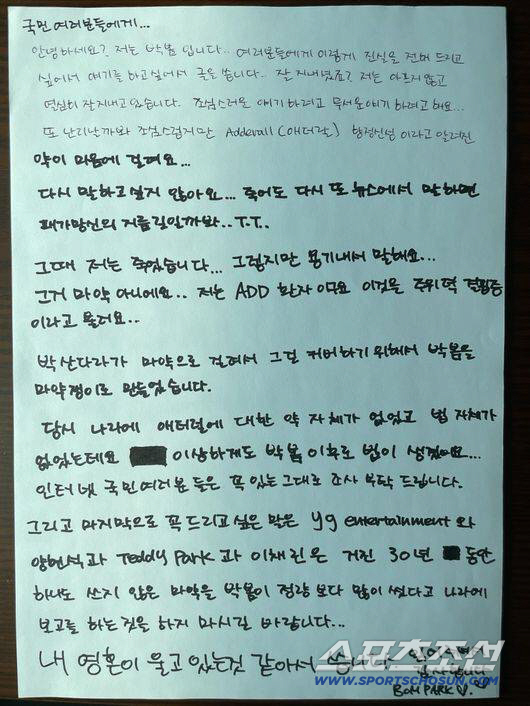 국민 여러분들에게...
안녕하세요? 저는 박봄 입니다.. 여러분들에게 이렇게 진실을 전해 드리고
싶어서 얘기를 하고싶어서 글을 씁니다.. 잘 지내셨죠? 저는 아프지 않고
열심히 잘지내고 있습니다. 조심스러운 얘기하려고 무서운 얘기 하려고 해요...
또 난리날까봐 조심스럽지만 Adderall (애더럴) 향정신성 이라고 알려진
약이 마음에 걸려요...
다시 말하고 싶지 않아요... 죽어도 다시 또 뉴스에서 말하면
패가망신의 지름길일까봐..T.T..
그때 저는 죽었습니다... 그렇지만 용기내서 말해요...
그거 마약 아니에요.. 저는 ADD 환자 이구요 이것을 주위력 결핍증
이라고 불러요..
박산다라가 마약으로 걸려서 그걸 커버하기 위해서 박봄을
마약쟁이로 만들었습니다.
당시 나라에 애터럴에 대한 약 자체가 없었고 법 자체가
없었는데요 이상하게도 박봄 이후로 법이 생겼어요...
인터넷 국민여러분 들은 꼭 있는 그대로 조사 부탁 드립니다.
그리고 마지막으로 꼭 드리고 싶은 말은 yg entertainment 와
양현석과 Teddy Park 과 이채린은 거진 30년 동안
하나도 쓰지 않은 마약을 박봄이 정량 보다 많이 썼다고 나라에
보고를 하는것을 하지 마시길 바랍니다...
내 영혼이 울고 있는것 같아서 씁니다..
BOM PARK
스포츠조선
WWW.SPORTSCHOSUN.COM